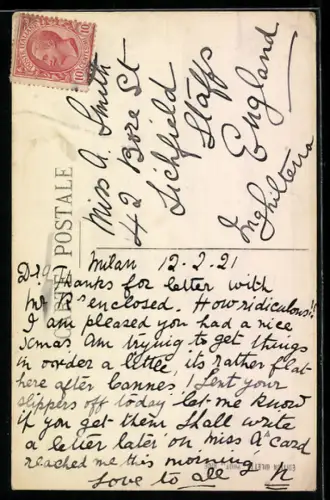 Miss A. Smith
42 Bore St
Lichfield
Staffs
England
Inghilterra
POSTALE
Milan 12.2.21
Thanks for letter with
Mr R's enclosed. How ridiculous!!
I am pleased you had a nice
Xmas am trying to get things
in order a little, its rather flat
here after Cannes! Sent your
slippers off today let me know
if you get them Shall write
a letter later on Miss A' card
reached me this morning
Love to all